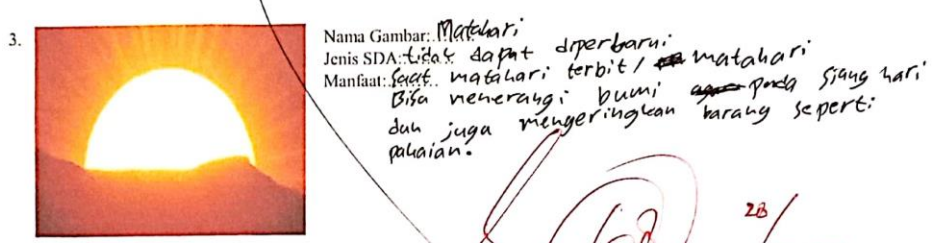 3.
Nama Gambar: Matahari
Jenis SDA: tidak dapat diperbarui
Manfaat: Saat matahari terbit / matahari
Bisa menerangi bumi pada siang hari
dan juga mengeringkan barang seperti
pakaian.
28